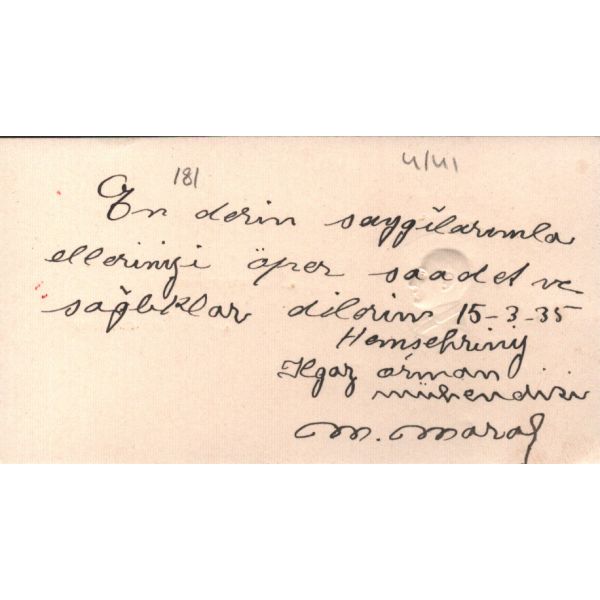 181
4/41
En derin saygılarımla
ellerinizi öper saadet ve
sağlıklar dilerim 15-3-35
Hemşehriniz
Ilgaz orman
mühendisi
M. Maral